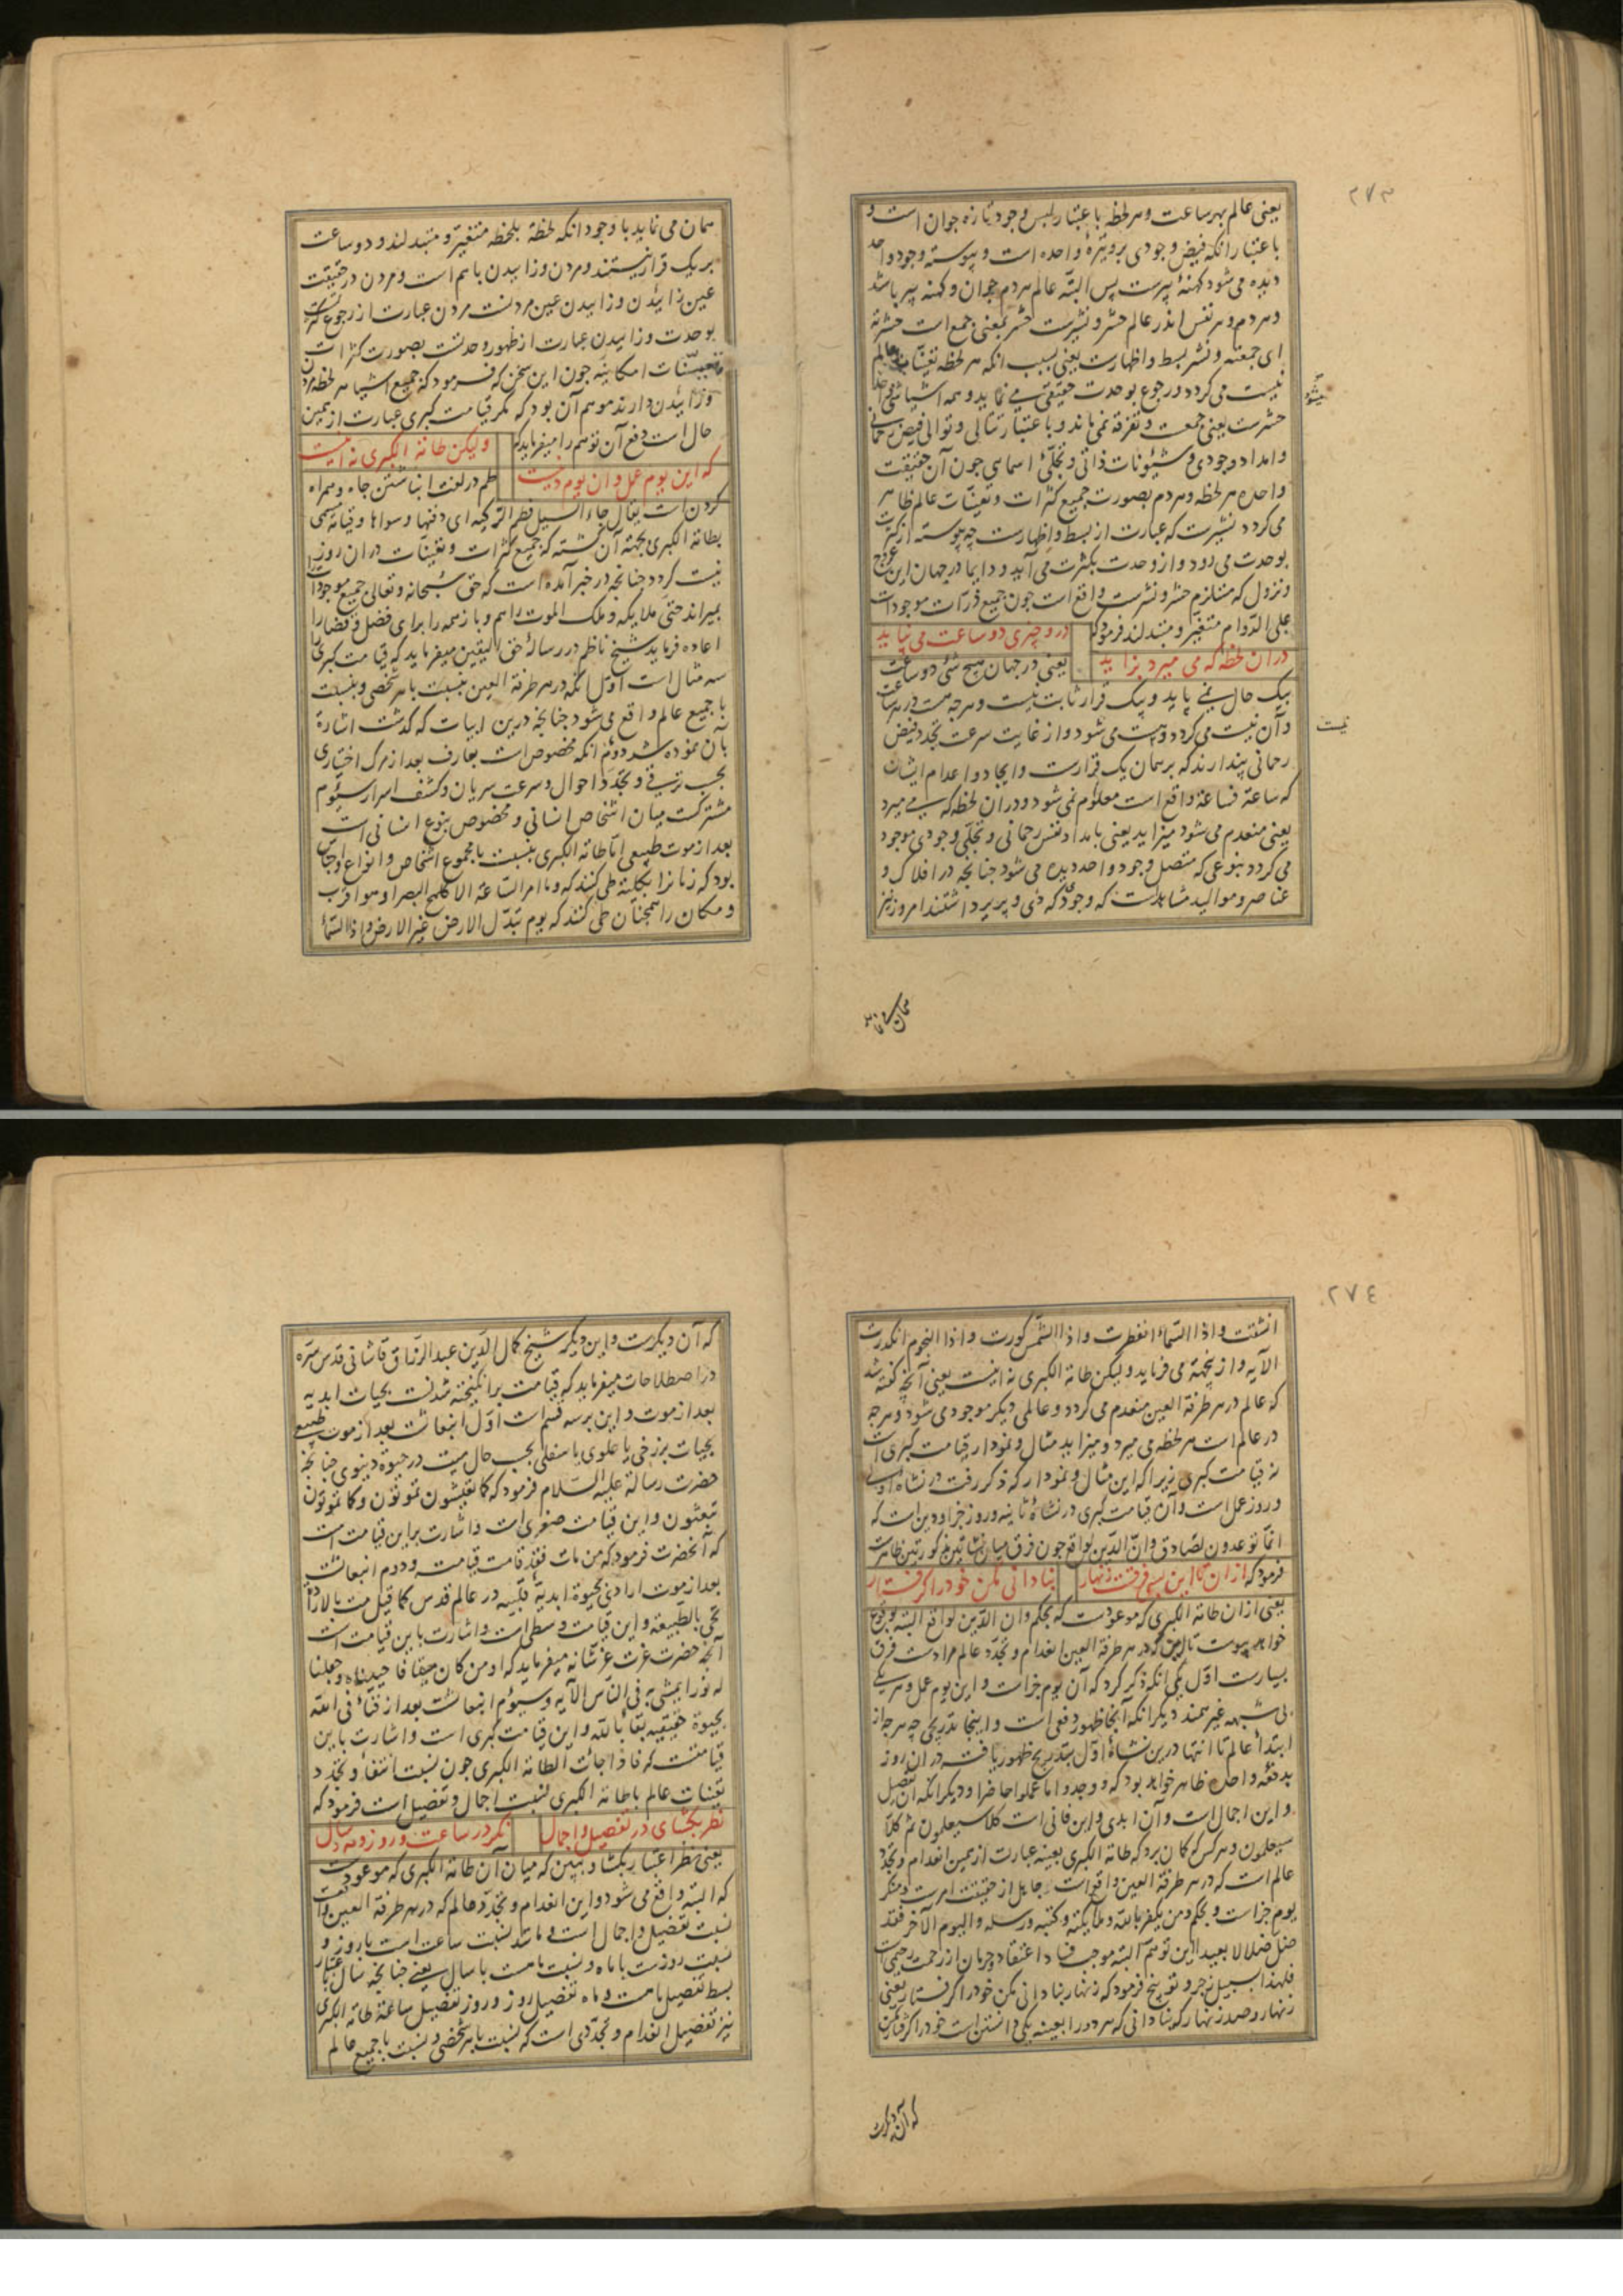 ٢٧٣
یعنی عالم بهر ساعت و هر لحظه باعتبار لبس وجود تازه جوان است و
باعتبار آنکه فیض وجودی بر وتیرهٔ واحده است و پیوسته وجود واحد
دیده می شود کهنهٔ پیرست پس البته عالم هر دم جوان و کهنه پیر باشد
و هر دم و هر نفس اندر عالم حشر و نشرست حشر بمعنی جمع است حشرته
ای جمعته و نشر بسط و اظهارست یعنی بسبب انکه هر لحظه تعینات عالم
نیست می کردد و رجوع بوحدت حقیقی می نماید و همه اشیا شئ واحد
میشود
حشرست یعنی جمعست و تفرقه نمی ماند و باعتبار تتالی و توالی فیض رحمانی
و امداد وجودی و شیونات ذاتی و تجلّی اسمایی چون آن حقیقت
واحده هر لحظه و هر دم بصورت جمیع کثرات و تعینات عالم ظاهر
می کردد نشرست که عبارت از بسط و اظهارست چه پیوسته از کثرت
بوحدت می رود و از وحدت بکثرت می آید و دایما در جهان این عروج
و نزول که مستلزم حشر و نشرست واقع است چون جمیع ذرّات موجودات
علی الدّوام متغیر و متبدلند فرمود که
درو چیزی دو ساعت می نپاید
دران لحظه که می میرد بزاید
یعنی در جهان هیچ شئ دو ساعت
بیک حال نمی پاید و بیک قرار ثابت نیست و هر چه هست در هر ساعت
و آن نیست می کردد و هست می شود و از غایت سرعت تجدد فیض
نیست
رحمانی پندارند که بر همان یک قرارست و ایجاد و اعدام ایشان
که ساعة فساعة واقع است معلوم نمی شود و دران لحظه که می میرد
یعنی منعدم می شود میزاید یعنی بامداد نفس رحمانی و تجلّی وجودی موجود
می کردد بنوعی که متصل وجود واحد دیده می شود چنانچه در افلاک و
عناصر و موالید مشاهدست که وجود که دی و پریر داشتند امروز نیز
همان می نماید
همان می نماید با وجود آنکه لحظة بلحظه متغیر و متبدلند و دو ساعت
بر یک قرار نیستند و مردن و زاییدن باهم است و مردن در حقیقت
عین زائیدن و زاییدن عین مردنست مردن عبارت از رجوع کثرت
بوحدت و زاییدن عبارت از ظهور وحدتست بصورت کثرات
و تعینات امکانیه چون این سخن که فرمود که جمیع اشیا هر لحظه مردن
و زائیدن دارند موهم آن بود که مکر قیامت کبری عبارت از همین
حال است دفع آن توهم را میفرماید که
ولیکن طامة الکبری نه اینست
که این یوم عمل وان یوم دینست
طم در لغت انباشتن چاه و همراه
کردن است یقال جاء السیل فطم الرکیه ای دفنها و سواها و قیامة مسمی
بطامة الکبری بجهة آن کشته که جمیع کثرات و تعینات دران روز
نیست کردد چنانچه در خبر آمده است که حق سبحانه و تعالی جمیع موجودات را
بمیراند حتی ملایکه و ملک الموت را هم و باز همه را برای فصل و قضا را
اعاده فرماید شیخ ناظم در رسالهٔ حق الیقین میفرماید که قیامت کبری را
سه مثال است اوّل آنکه در هر طرفة العین نسبت با هر شخصی و بنسبت
با جمیع عالم واقع می شود چنانچه درین ابیات که کذشت اشارة
بان نموده شد دوم آنکه مخصوص است بعارف بعد از مرک اختیاری
بحسب ترقی و تجدّد احوال و سرعت سریان و کشف اسرار سیوم
مشترکست میان اشخاص انسانی و مخصوص بنوع انسانی است
بعد از موت طبیعی امّا طامة الکبری بنسبت با مجموع اشخاص و انواع و اجناس
بود که زمانرا بکلیّه طی کنند که و ما امر الساعة الا کلمح البصر او هو اقرب
و مکان را همچنان طی کنند که یوم تبدّل الارض غیر الارض و اذا السّماء
٢٧٤
انشقت و اذا السّماء انفطرت و اذا الشّمس کورت و اذا النجوم انکدرت
الآیه و از ینجهة می فرماید ولیکن طامة الکبری نه اینست یعنی آنچه کفته شد
که عالم در هر طرفة العین منعدم می کردد و عالمی دیکر موجود می شود و هر چه
در عالم است هر لحظه می میرد و میزاید مثال و نمودار قیامت کبری است
نه قیامت کبری زیرا که این مثال و نمودار که ذکر رفت در نشاهٔ اولی
و روز عمل است و آن قیامت کبری در نشاهٔ ثانیه و روز جزا و دین است که
انّما توعدون لصادق و انّ الدّین لواقع چون فرق میان نشاتین مذکورتین ظاهرست
فرمود که
ازان تا این بسی فرقست زنهار
بنادانی مکن خود را کرفتار
یعنی ازان طامة الکبری که موعودست که بحکم وان الدّین لواقع البته بوقوع
خواهد پیوست تا این که در هر طرفة العین انعدام و تجدّد عالم مرادست فرق
بسیارست اوّل یکی آنکه ذکر کرد که آن یوم جزاست و این یوم عمل و هر یکی
بی شبهه غیر همند دیکر آنکه آنجا ظهور دفعی است و اینجا تدریجی چه هر چه از
ابتدأ عالم تا انتها درین نشأة اوّل بتدریج ظهور یافت دران روز
بدفعهٔ واحده ظاهر خواهد بود که و وجدوا ما عملوا حاضرا و دیکر آنکه آن تفصیل
و این اجمال است و آن ابدی و این فانی است کلّا سیعلمون ثم کلّا
سیعلمون و هر کس که کمان برد که طامة الکبری بعینه عبارت از همین انعدام و تجدّد
عالم است که در هر طرفة العین واقع است جاهل از حقیقت امرست و منکر
یوم جزاست و بحکم و من یکفر بالله و ملائکته و کتبه و رسله و الیوم الآخر فقد
ضلّ ضلالا بعیدا این توهم البته موجب فساد اعتقاد و حرمان از رحمت رحیمی است
فلهذا بسبیل زجر و توبیخ فرمود که زنهار بنادانی مکن خود را کرفتار یعنی
زنهار و صد زنهار که بنادانی که هر دو را بعینه یکی دانستن است خود را کرفتار مکن
که آن دیکرست
که آن دیکرست و این دیکر شیخ کمال الدّین عبد الرزّاق قاشانی قدس سرّه
در اصطلاحات میفرماید که قیامت برانکیخته شدنست بحیات ابدیه
بعد از موت و این بر سه قسم است اوّل انبعاثست بعد از موت طبیعی
بحیات برزخی یا علوی یا سفلی بحسب حال میت در حیوة دنیوی چنانچه
حضرت رسالة علیه السّلام فرمود که کما تعیشون تموتون و کما تموتون
تبعثون و این قیامت صغری است و اشارت براین قیامت است
که آنحضرت فرمود که من مات فقد قامت قیامته و دوم انبعاثست
بعد از موت ارادی بحیوة ابدیّهٔ قلبیّه در عالم قدس کما قیل مت بالارادة
تحی بالطبیعة و این قیامت وسطی است و اشارت باین قیامت است
آنچه حضرت عزت عز شانه میفرماید که او من کان میتا فاحییناه و جعلنا
له نورا یمشی به فی النّاس الآیه و سیوم انبعاثست بعد از فناء فی الله
بحیوة حقیقیه بقاء بالله و این قیامت کبری است و اشارت باین
قیامتست که فاذا جائت الطامة الکبری چون نسبت انتفاء و تجدّد
تعینات عالم با طامة الکبری نسبت اجمال و تفصیل است فرمود که
نظر بکشای در تفصیل و اجمال
نکر در ساعت و روز و مه و سال
یعنی نظر اعتبار بکشا و ببین که میان آن طامة الکبری که موعودست
که البته واقع می شود و این انعدام و تجدّد عالم که در هر طرفة العین واقعست
نسبت تفصیل و اجمال است و مانند نسبت ساعت است با روز و
نسبت روزست با ماه و نسبت ماهست با سال یعنی چنانچه سال باعتبار
بسط تفصیل ماهست و ماه تفصیل روز و روز تفصیل ساعة طامة الکبری
نیز تفصیل انعدام و تجدّدی است که نسبت با هر شخصی و نسبت با جمیع عالم